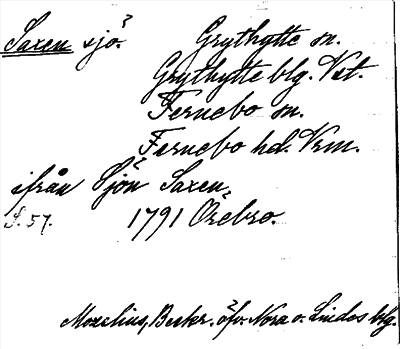 Saxen sjö. Grythytte sn.
Grythytte blg. Vst.
Fernebo sn.
Fernebo hd. Vrm.
ifrån Sjön Saxen,
S. 57. 1791 Örebro.
Mozelius, Beskr. öfv. Nora o. Lindes blg.